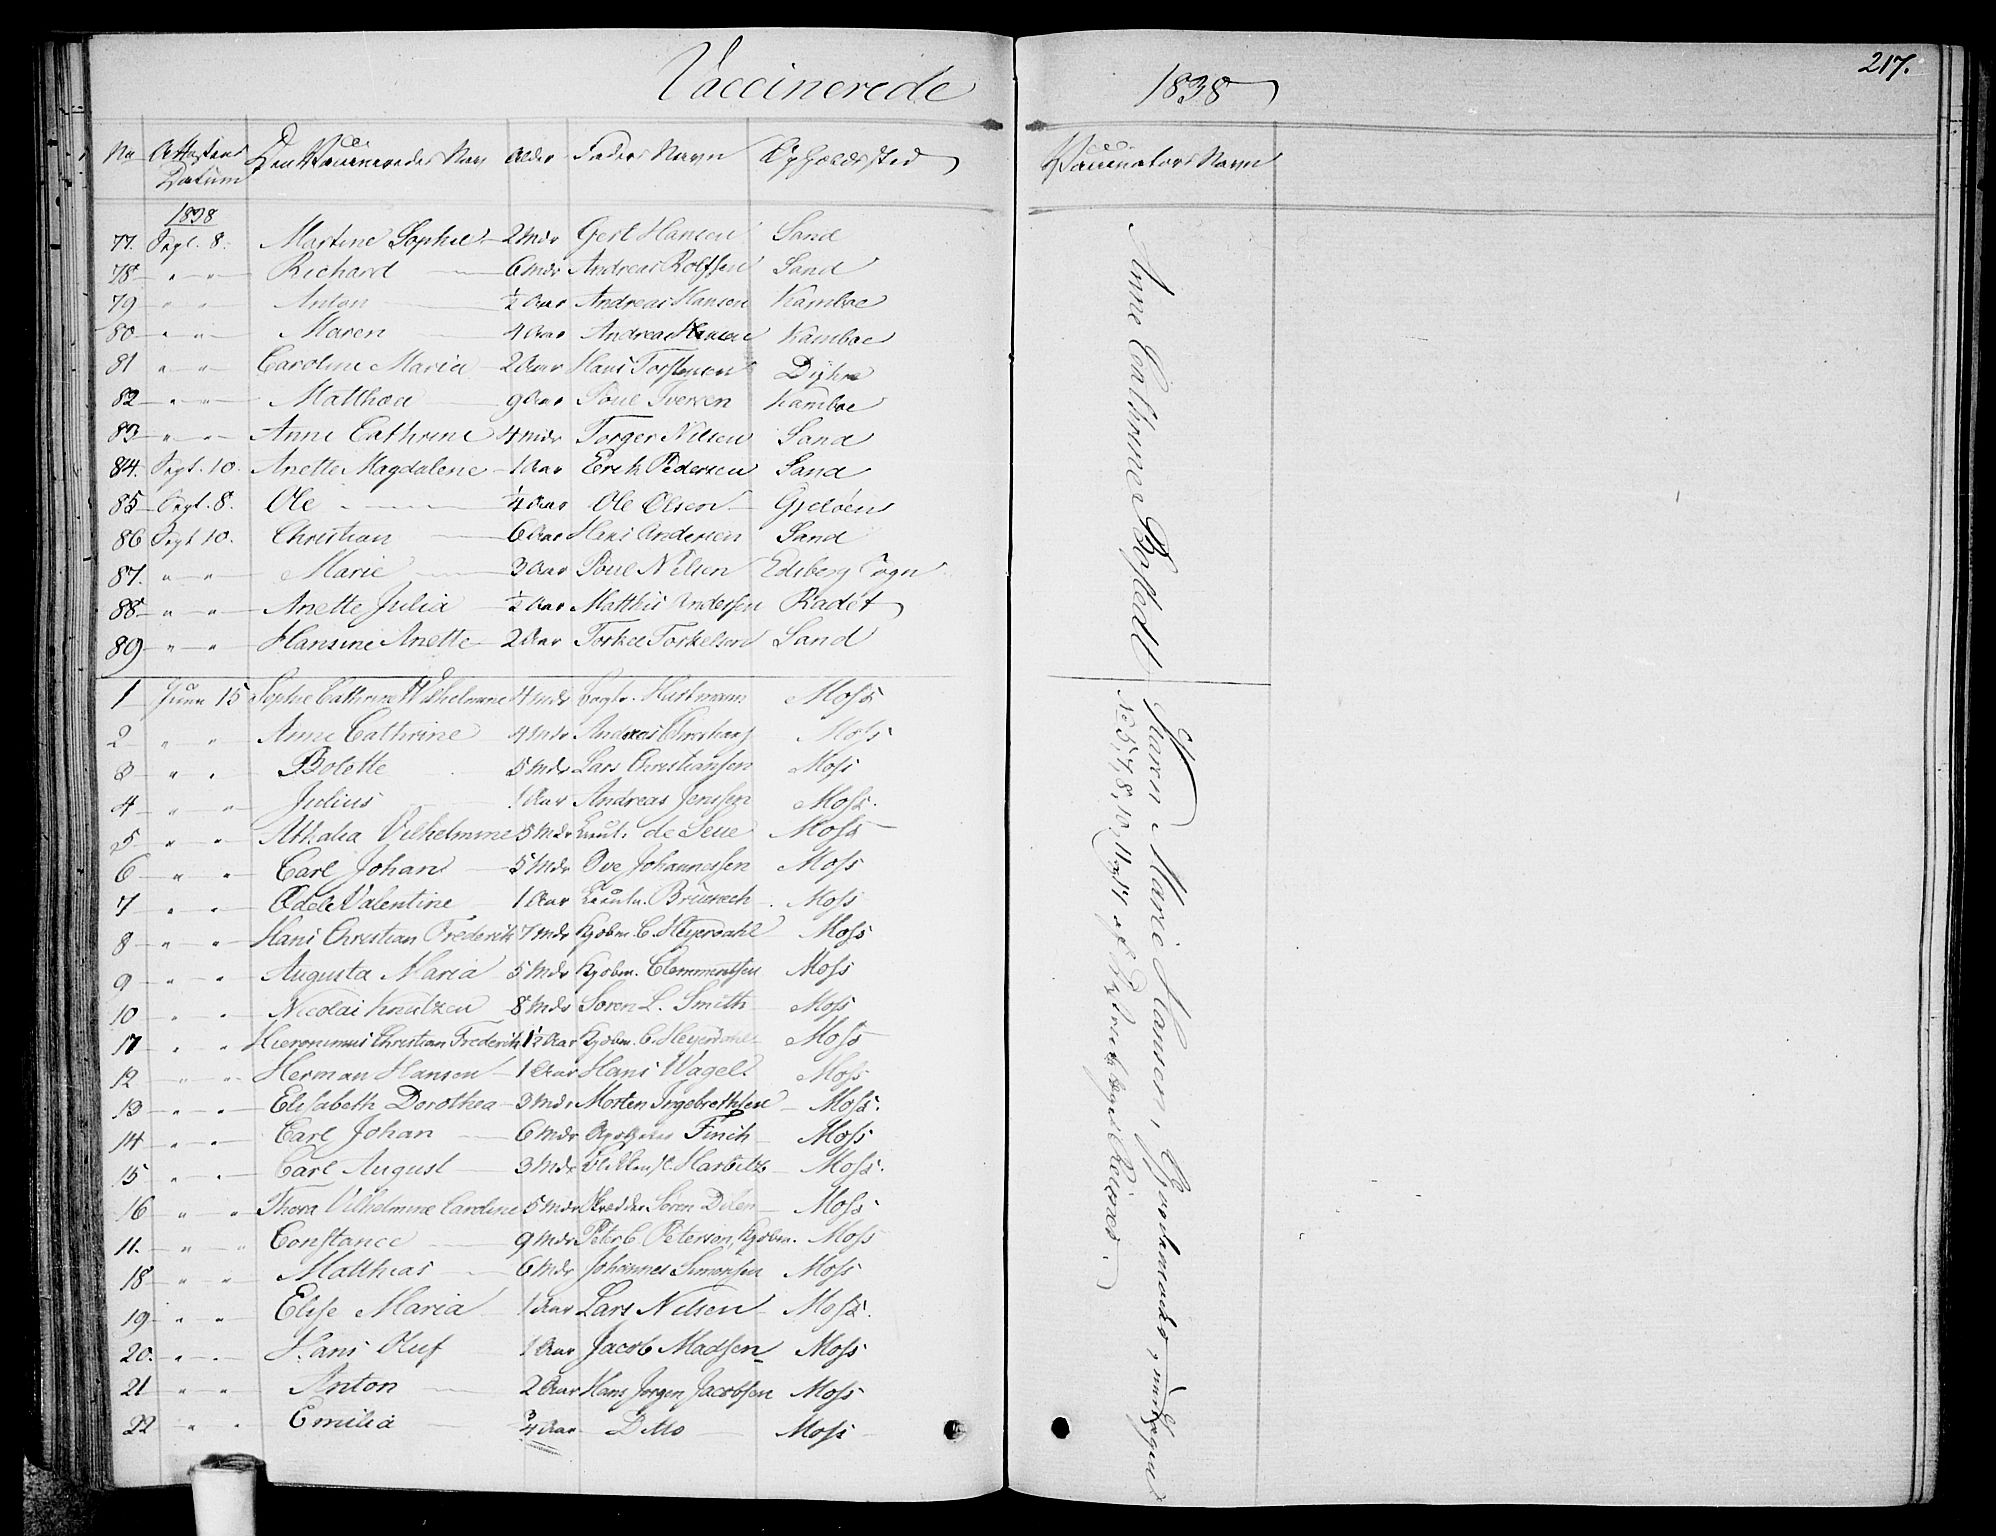 Vaccinerede
1838
217.
No Attestens Datum Den Vaccineredes Navn Alder Faders Navn Opholdssted
Vaccinators Navn
1838
77. Sept. 8. Martine Sophie 2 Mdr Gerl Hansen Sand
78 " " Richard 6 Mdr Andreas Rolfsen Sand
79 " " Anton ½ Aar Andreas Hansen Kamboe
80 " " Maren 4 Aar Andreas Hansen Kamboe
81 " " Caroline Maria 2 Aar Hans Torstensen Dyhre
82 " " Matthea 9 Aar Poul Iversen Kamboe
83 " " Anne Cathrine 4 Mdr Torger Nilsen Sand
84. Sept. 10. Anette Magdalene 1 Aar Erik Pedersen Sand
85 Sept. 8. Ole ¼ Aar Ole Olsen Gjeløen
86 Sept 10. Christian 6 Aar Hans Andersen Sand
87. " " Marie 3 Aar Poul Nilsen Edsberg Sogn
88 " " Anette Julia ½ Aar Matthis Andersen Radet
89 " " Hansine Anette 2 Aar Torkel Torkelsen Sand
1 Juni 15 Sophie Cathrine Wilhelmine 4 Mdr Moss
2 " " Anne Cathrine 4 Mdr Andreas Moss
3 " " Bolette 5 Mdr Lars Christiansen Moss
4 " " Julius 1 Aar Andreas Jenssen Moss.
5 " " Athalia Vilhelmine 5 Mdr Lieut. de Seue Moss
6 " " Carl Johan 5 Mdr Ove Johannessen Moss
7 " " Adele Valentine 1 Aar Moss
8 " " Hans Christian Frederik 7 Mdr Kjøbm. C. Heyerdahl Moss
9 " " Augusta Maria 5 Mdr Kjøbm. Clemmentsen Moss
10 " " Nicolai Knutzen 8 Mdr Søren L. Smith Moss
17 " " Hieronimus Christian Frederik 1½ Aar Kjøbm. C. Heyerdahl Moss
12 " " Herman Hansen 1 Aar Hans Vagel Moss
13 " " Elisabeth Dorothea 3 Mdr Morten Ingebrethsen Moss.
14 " " Carl Johan 6 Mdr Apotheker Finch Moss
15 " " Carl August 3 Mdr Harbitz Moss.
16 " " Thora Vilhelmine Caroline 5 Mdr Skredder Søren Dilen Moss
11. " " Constance 9 Mdr Peter C Petersen, Kjøbm. Moss
18 " " Matthias 6 Mdr Johannes Simonsen Moss
19 " " Elise Maria 1 Aar Lars Nilsen Moss.
20. " " Hans Oluf 1 Aar Jacob Madsen Moss
21 " " Anton 2 Aar Hans Jørgen Jacobsen Moss
22 " " Emilia ¾ Aar Ditto Moss
Anne Cathrine Bostedt
Karen Marie Hansen, Gjordemoder, undtagen
No 5, 7, 8, 10, 11, 17